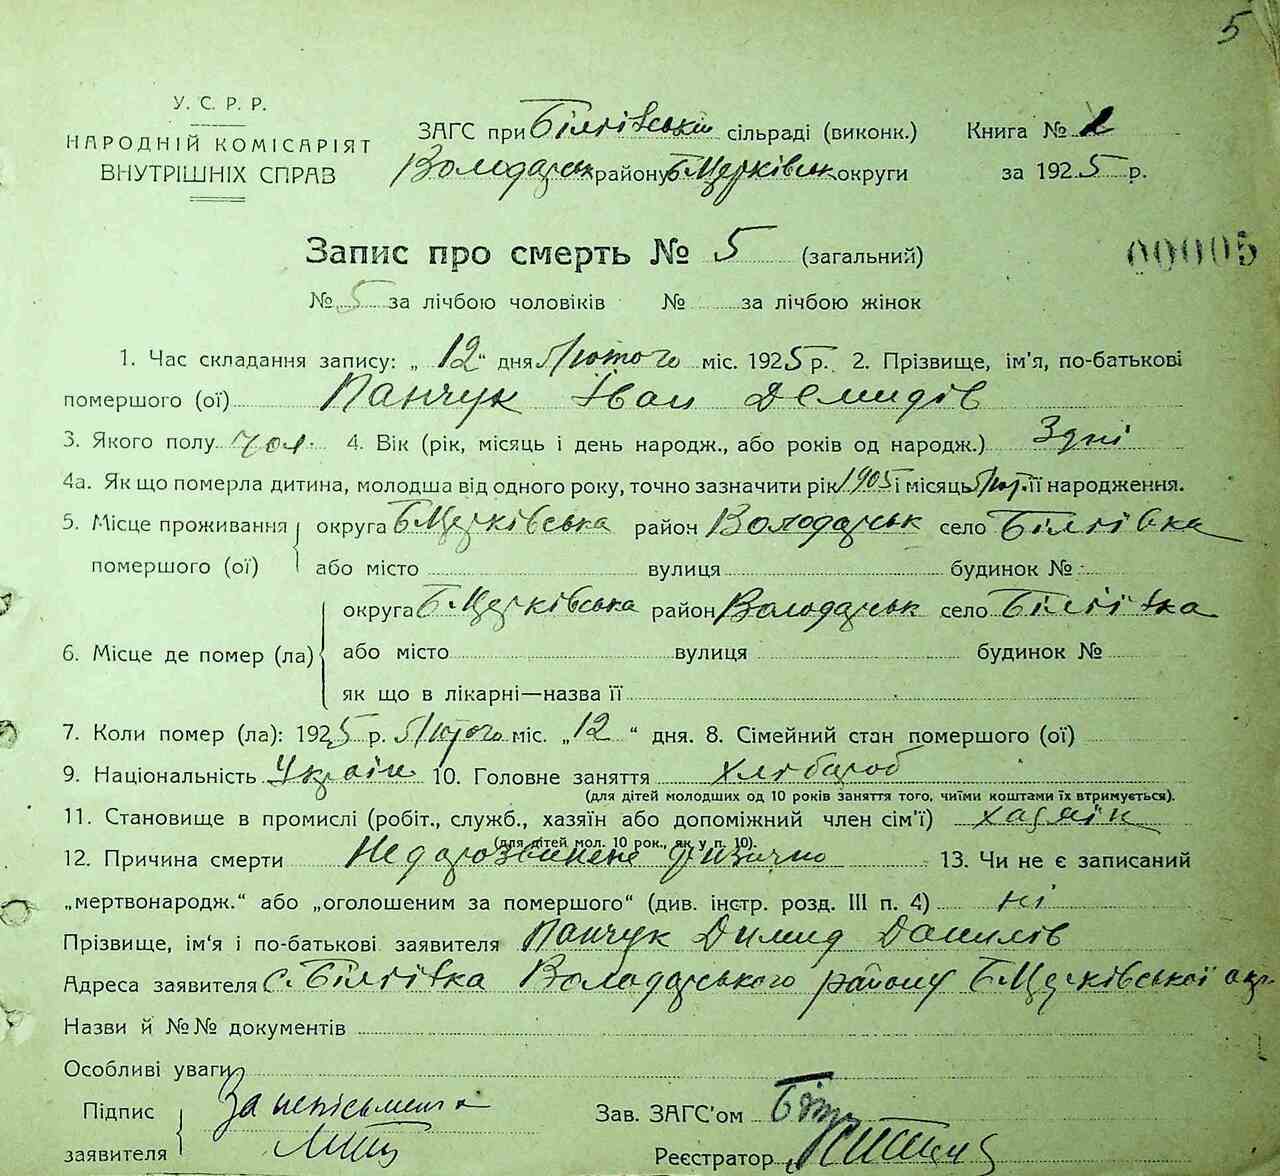 5
У. С. Р. Р.
НАРОДНІЙ КОМІСАРІЯТ
ВНУТРІШНІХ СПРАВ
ЗАГС при Біліївській сільраді (виконк.) Книга №
Володарськ району Б.Церківськ округи за 1925 р.
Запис про смерть № 5 (загальний)
00005
№ 5 за лічбою чоловіків № за лічбою жінок
1. Час складання запису: „ 12 “ дня Лютого міс. 1925 р. 2. Прізвище, ім'я, по-батькові
помершого (ої) Панчук Іван Демидів
3. Якого полу чол. 4. Вік (рік, місяць і день народж., або років од народж.) 3 дні
4а. Як що померла дитина, молодша від одного року, точно зазначити рік 1905 і місяць Лют. її народження.
5. Місце проживання помершого (ої) округа Б.Церківська район Володарськ село Біліївка
або місто вулиця будинок №
6. Місце де помер (ла) округа Б.Церківська район Володарськ село Біліївка
або місто вулиця будинок №
як що в лікарні—назва її
7. Коли помер (ла): 1925 р. Лютого міс. „ 12 “ дня. 8. Сімейний стан помершого (ої)
9. Національність Україн 10. Головне заняття Хлібороб
(для дітей молодших од 10 років заняття того, чиїми коштами їх втримується).
11. Становище в промислі (робіт., служб., хазяїн або допоміжний член сім'ї) хазяїн
(для дітей мол. 10 рок., як у п. 10).
12. Причина смерти фізично 13. Чи не є записаний
„мертвонародж.“ або „оголошеним за помершого“ (див. інстр. розд. III п. 4) ні
Прізвище, ім'я і по-батькові заявителя Панчук Димид Данилів
Адреса заявителя с. Біліївка Володарського району Б.Церківської окр.
Назви й №№ документів
Особливі уваги
Підпис заявителя За неписьмен
Зав. ЗАГС'ом
Реєстратор